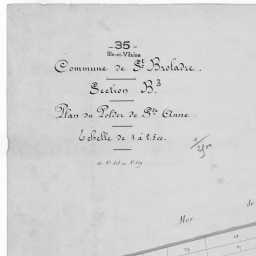 35
Ille-et-Vilaine
Commune de St Broladre.
Section B.3
Plan du Polder de Ste Anne.
Echelle de 1 à 2.500.
Mer
de